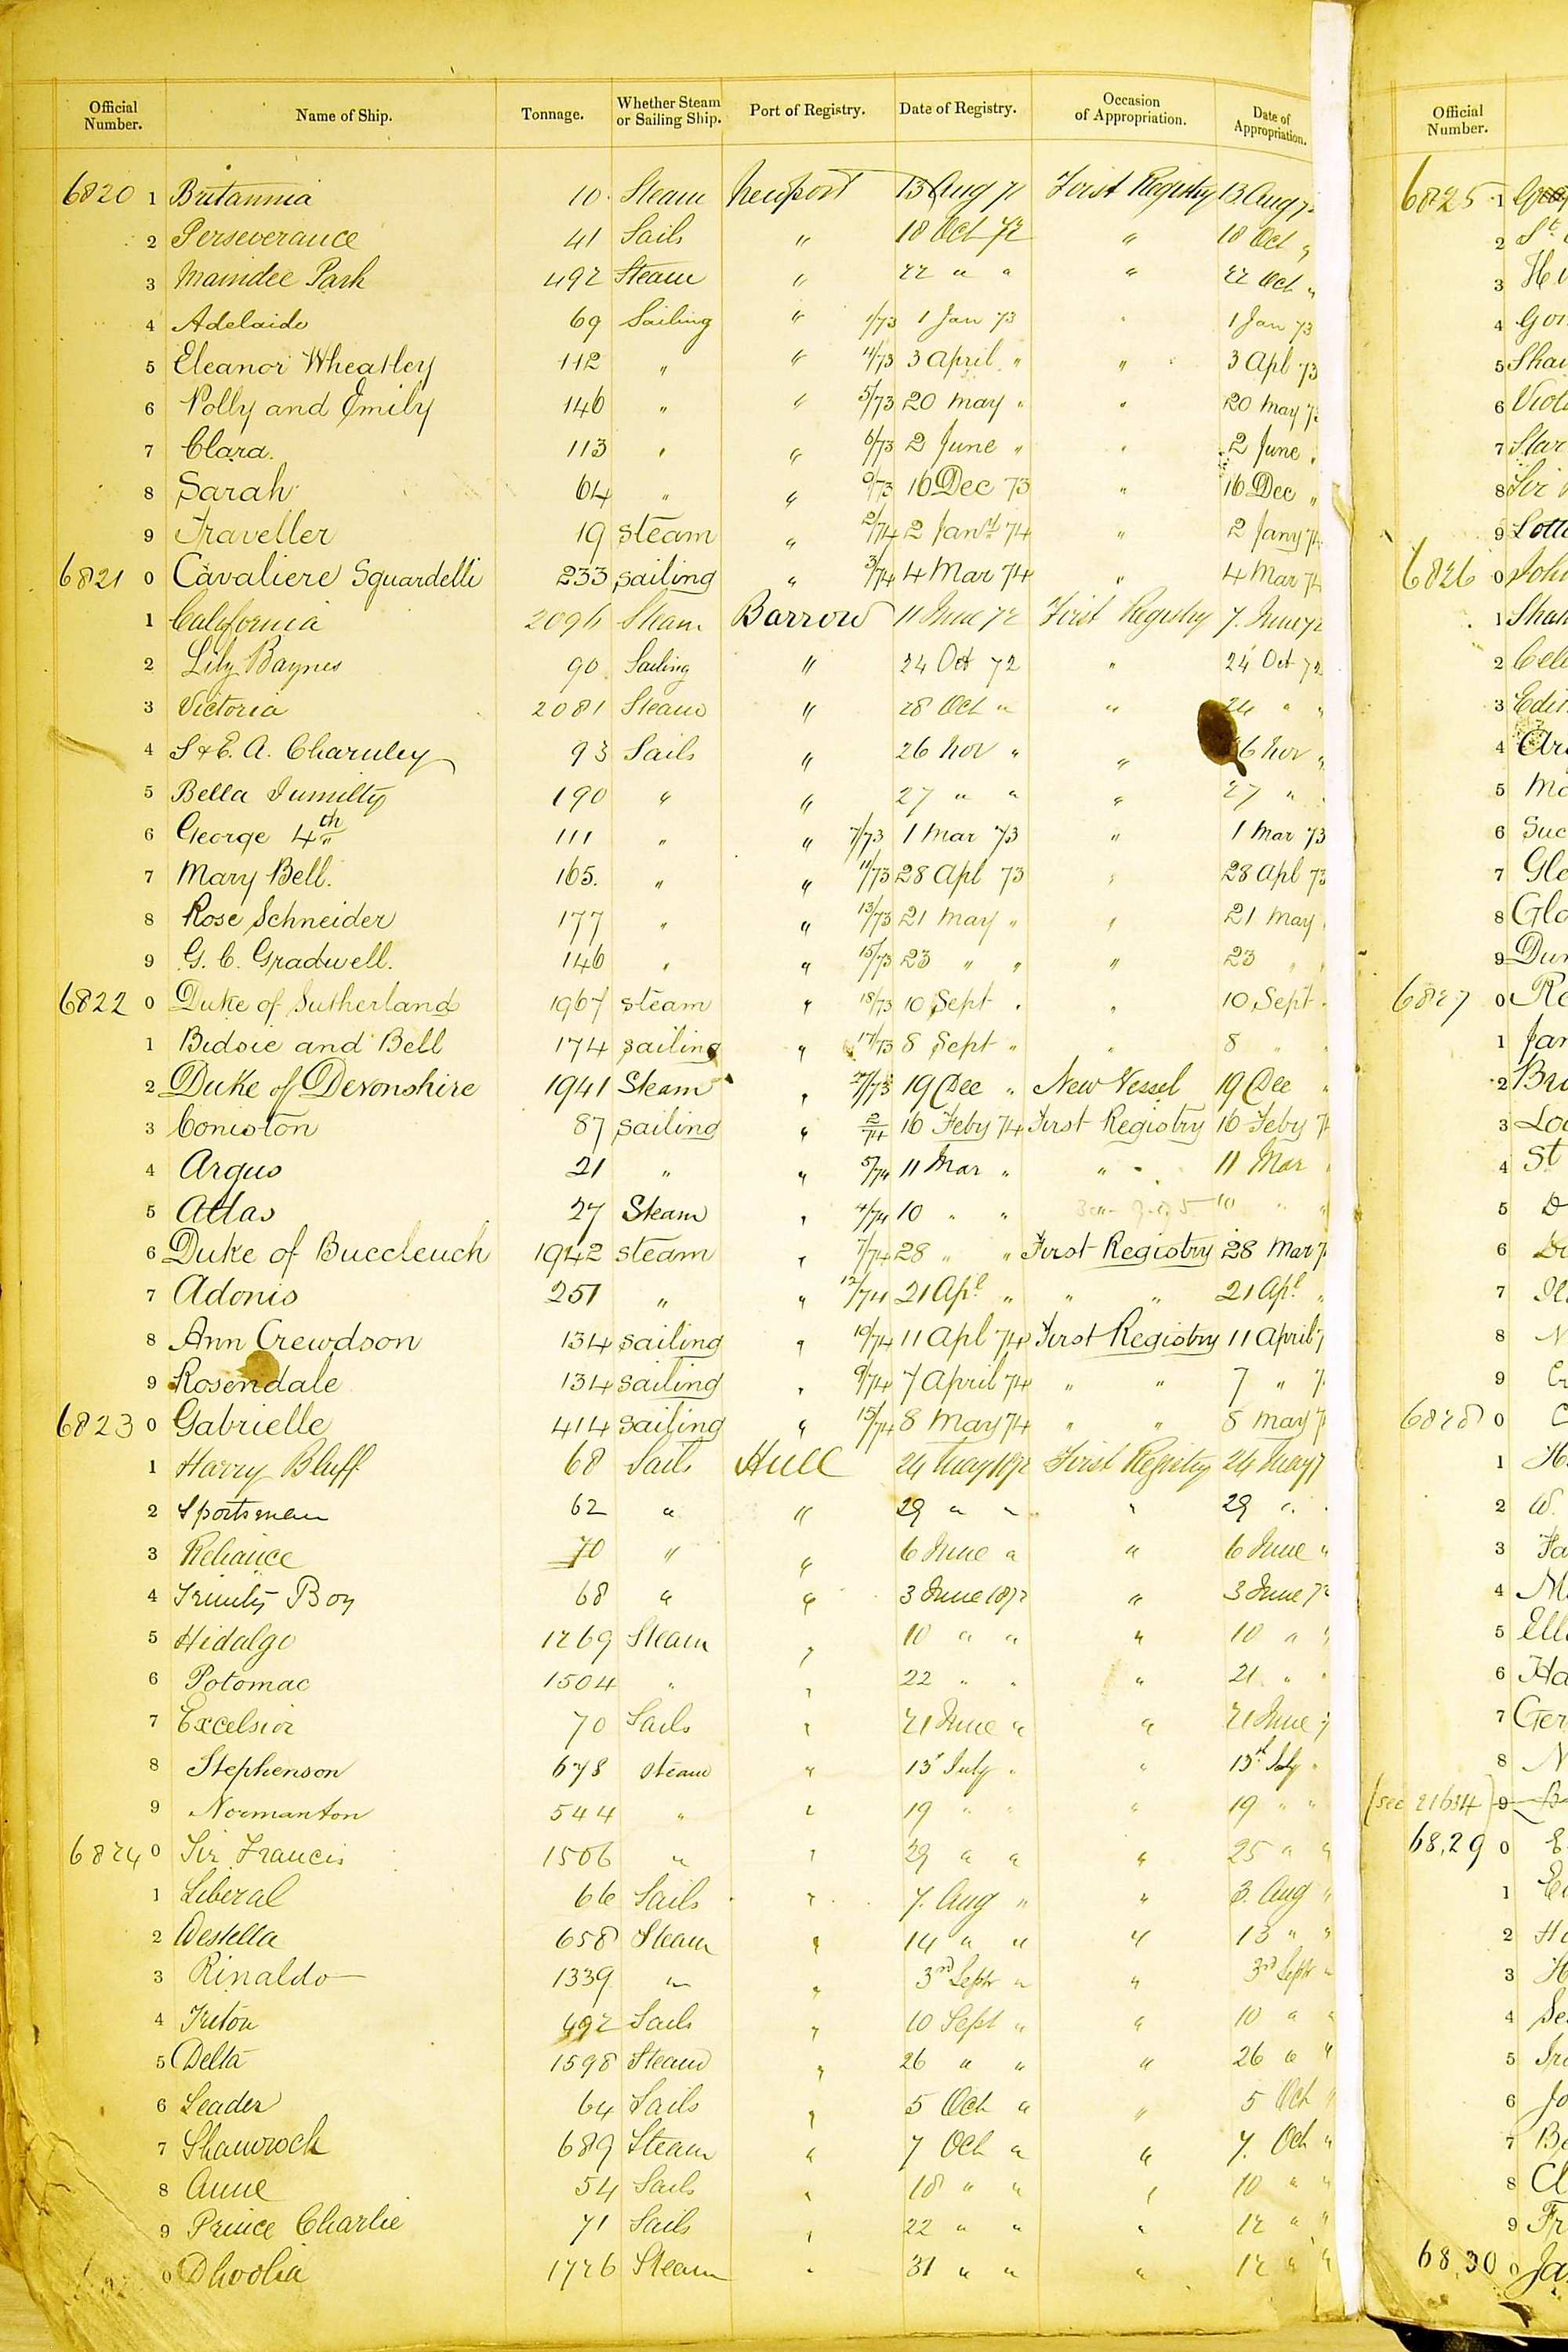 Official Number. Name of Ship. Tonnage. Whether Steam or Sailing Ship. Port of Registry. Date of Registry. Occasion of Appropriation. Date of Appropriation. Official Number.
6820 1 Britannia 10 Steam Newport 13 Aug 71 First Registry 13 Aug 7
2 Perseverance 41 Sails " 18 Oct 72 " 18 Oct "
3 Maindee Park 492 Steam " 22 " " " 22 Oct "
4 Adelaide 69 Sailing " 1/73 1 Jan 73 " 1 Jan 73
5 Eleanor Wheatley 112 " " 4/73 3 April " " 3 Apl 73
6 Polly and Emily 146 " " 5/73 20 May " " 20 May 73
7 Clara. 113 " " 6/73 2 June " " 2 June "
8 Sarah 64 " " 9/73 16 Dec 73 " 16 Dec "
9 Traveller 19 steam " 2/74 2 Jany 74 " 2 Jany 74
6821 0 Cavaliere Sguardelli 233 sailing " 3/74 4 Mar 74 " 4 Mar 74
1 California 2096 Steam Barrow 11 June 72 First Registry 7. June 72
2 Lily Baynes 90. Sailing " 24 Oct 72 " 24 Oct 72
3 Victoria 2081 Steam " 28 Oct " " 24 " "
4 S & E. A. Charnley 93 Sails " 26 Nov " " 26 Nov "
5 Bella 190 " " 27 " " " 27 " "
6 George 4th 111 " " 7/73 1 Mar 73 " 1 Mar 73
7 Mary Bell. 165. " " 11/73 28 Apl 73 " 28 Apl 73
8 Rose Schneider 177 " " 13/73 21 May " " 21 May "
9 G. C. Gradwell. 146 " " 15/73 23 " " " 23 " "
6822 0 Duke of Sutherland 1967 steam " 18/73 10 Sept " " 10 Sept "
1 Bidsie and Bell 174 sailing " 17/73 8 Sept " " 8 " "
2 Duke of Devonshire 1941 Steam " 19 Dec " New Vessel 19 Dec "
3 Coniston 87 sailing " 2/74 16 Feby 74 First Registry 16 Feby 7
4 Argus 21 " " 5/74 11 Mar " " " 11 Mar "
5 Atlas 27 Steam " 4/74 10 " " 10 " "
6 Duke of Buccleuch 1942 steam " 7/74 28 " " First Registry 28 Mar 7
7 Adonis 251 " " 12/74 21 Apl " " " 21 Apl "
8 Ann Crewdson 134 sailing " 10/74 11 Apl 74 First Registry 11 April 7
9 Rosendale 134 sailing " 9/74 7 April 74 " " 7 " 7
6823 0 Gabrielle 414 sailing " 15/74 8 May 74 " " 8 May 7
1 Harry Bluff 68 Sails Hull 24 May 1872 First Registry 24 May 7
2 Sportsman 62 " " 29 " " " 29 " "
3 Reliance 70 " " 6 June " " 6 June "
4 Trinity Boy 68 " " 3 June 1872 " 3 June 72
5 Hidalgo 1269 Steam " 10 " " " 10 " "
6 Potomac 1504 " " 22 " " " 21 " "
7 Excelsior 70 Sails " 21 June " " 21 June 7
8 Stephenson 678 steam " 13 July " " 13th July "
9 Normanton 544 " " 19 " " " 19 " "
6824 0 Sir Francis 1506 " " 29 " " " 25 " "
1 Liberal 66 Sails " 7. Aug " " 3. Aug "
2 Westella 658 Steam " 14 " " " 13 " "
3 Rinaldo 1339 " " 3rd Septr " " 3rd Septr "
4 Triton 492 Sails " 10 Sept " " 10 " "
5 Delta 1598 Steam " 26 " " " 26 " "
6 Leader 64 Sails " 5 Oct " " 5 Oct "
7 Shamrock 689 Steam " 7 Oct " " 7. Oct "
8 Anne 54 Sails " 18 " " " 10 " "
9 Prince Charlie 71 Sails " 22 " " " 12 " "
0 Dhoolia 1726 Steam " 31 " " " 12 " "
6825 1
2 St
3
4
5
6
7
8 Sir
9
6826 0
1
2
3
4
5
6
7
8
9
6827 0
1
2
3
4 St
5
6
7
8
9
6828 0
1
2 W.
3
4
5
6
7
8
(see 21634) 9
68,29 0
1
2
3
4
5
6
7
8
9
68,30 0